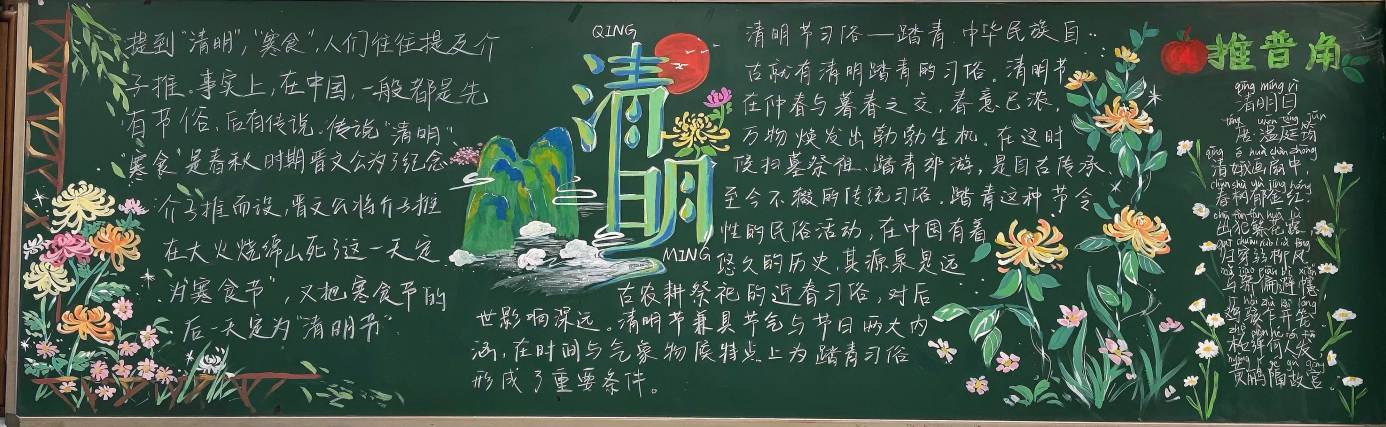 提到“清明”,“寒食”,人们往往提及介
子推。事实上,在中国,一般都是先
有节俗,后有传说。传说“清明”
“寒食”是春秋时期晋文公为了纪念
介子推而设,晋文公将介子推
在大火烧绵山死了这一天定
为“寒食节”,又把寒食节的
后一天定为“清明节”
QING
清
明
MING
清明节习俗——踏青 中华民族自
古就有清明踏青的习俗。清明节
在仲春与暮春之交,春意已浓,
万物焕发出勃勃生机。在这时
候扫墓祭祖、踏青郊游,是自古传承、
至今不辍的传统习俗。踏青这种节令
性的民俗活动,在中国有着
悠久的历史,其源泉是远
古农耕祭祀的迎春习俗,对后
世影响深远。清明节兼具节气与节日两大内
涵,在时间与气象物候特点上为踏青习俗
形成了重要条件。
推普角
qīng míng rì
清明日
táng wēn tíng jūn
唐·温庭筠
qīng é huà shàn zhōng
清娥画扇中,
chūn shù yù jīn hóng
春树郁金红。
出犯繁花露,
归穿弱柳风。
马骄偏避幰,
鸡骇乍开笼。
柘弹何人发,
黄鹂隔故宫。